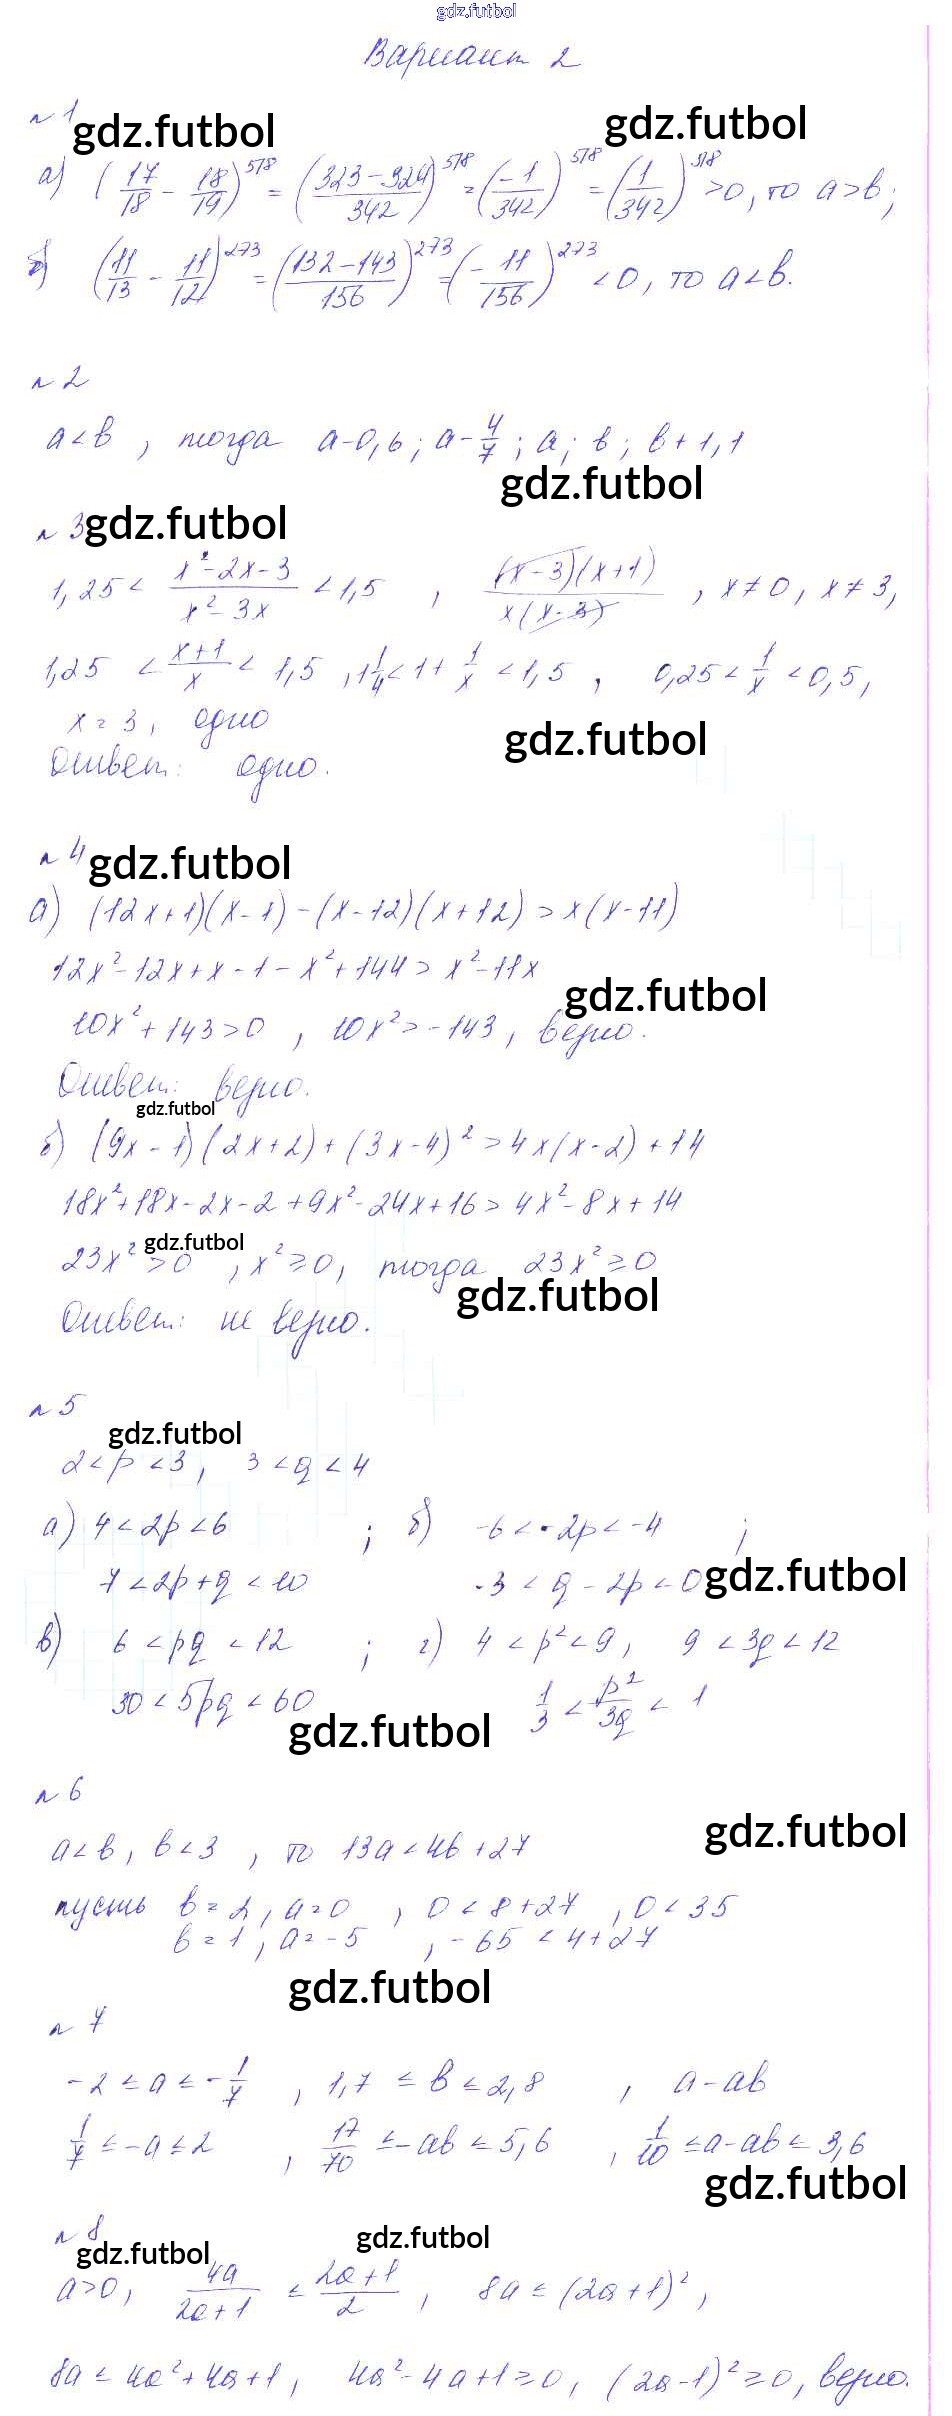 gdz.futbol
Вариант 2
n 1 gdz.futbol gdz.futbol
а) (17/18 - 18/19)^578 = (323-324/342)^578 = (-1/342)^578 = (1/342)^578 >0, то a>b;
б) (11/13 - 11/12)^273 = (132-143/156)^273 = (-11/156)^273 <0, то a<b.
n 2
a<b, тогда a-0,6; a-4/7; a; b; b+1,1
gdz.futbol
n 3 gdz.futbol
1,25 < x²-2x-3/x²-3x < 1,5, (x-3)(x+1)/x(x-3), x≠0, x≠3,
1,25 < x+1/x < 1,5, 1 1/4 < 1+1/x < 1,5, 0,25 < 1/x < 0,5,
x=3, одно gdz.futbol
Ответ: одно.
n 4 gdz.futbol
а) (12x+1)(x-1)-(x-12)(x+12)>x(x-11)
12x²-12x+x-1-x²+144>x²-11x
gdz.futbol
10x²+143>0, 10x²>-143, верно.
Ответ: верно.
gdz.futbol
б) (9x-1)(2x+2)+(3x-4)²>4x(x-2)+14
18x²+18x-2x-2+9x²-24x+16>4x²-8x+14
gdz.futbol
23x²>0, x²≥0, тогда 23x²≥0
gdz.futbol
Ответ: не верно.
n 5
gdz.futbol
2<p<3, 3<q<4
а) 4<2p<6; б) -6<-2p<-4;
7<2p+q<10 -3<q-2p<0 gdz.futbol
в) 6<pq<12; г) 4<p²<9, 9<3q<12
30<5pq<60 1/3<p²/3q<1
gdz.futbol
n 6
gdz.futbol
a<b, b<3, то 13a<4b+27
пусть b=2, a=0, 0<8+27, 0<35
b=1, a=-5, -65<4+27
gdz.futbol
n 7
-2≤a≤-1/7, 1,7≤b≤2,8, a-ab
1/7≤-a≤2, 17/70≤-ab≤5,6, 1/10≤a-ab≤3,6
gdz.futbol
n 8
gdz.futbol gdz.futbol
a>0, 4a/2a+1 ≤ 2a+1/2, 8a≤(2a+1)²,
8a≤4a²+4a+1, 4a²-4a+1≥0, (2a-1)²≥0, верно.